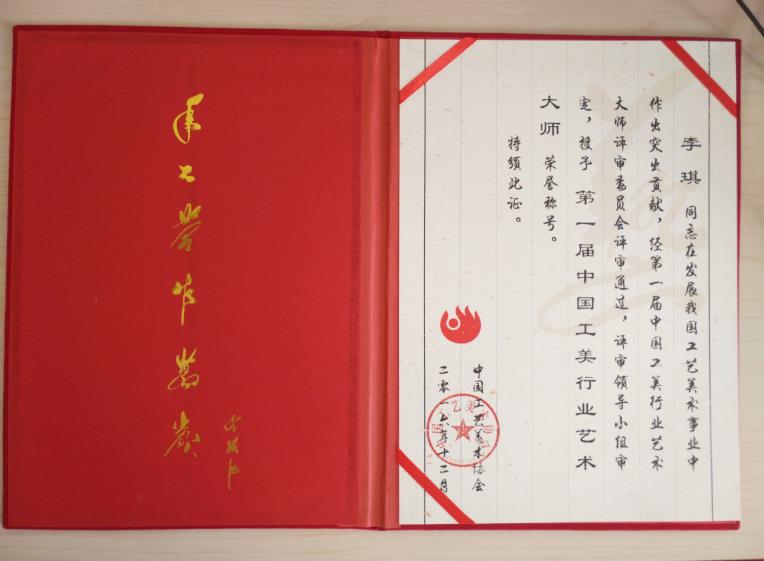 手工勞作萬歲
李琪 同志在发展我国工艺美术事业中
作出突出贡献，经第一届中国工美行业艺术
大师评审委员会评审通过，评审领导小组审
定，授予 第一届中国工美行业艺术
大师 荣誉称号。
特颁此证。
中国工艺美术协会
二零一六年十二月